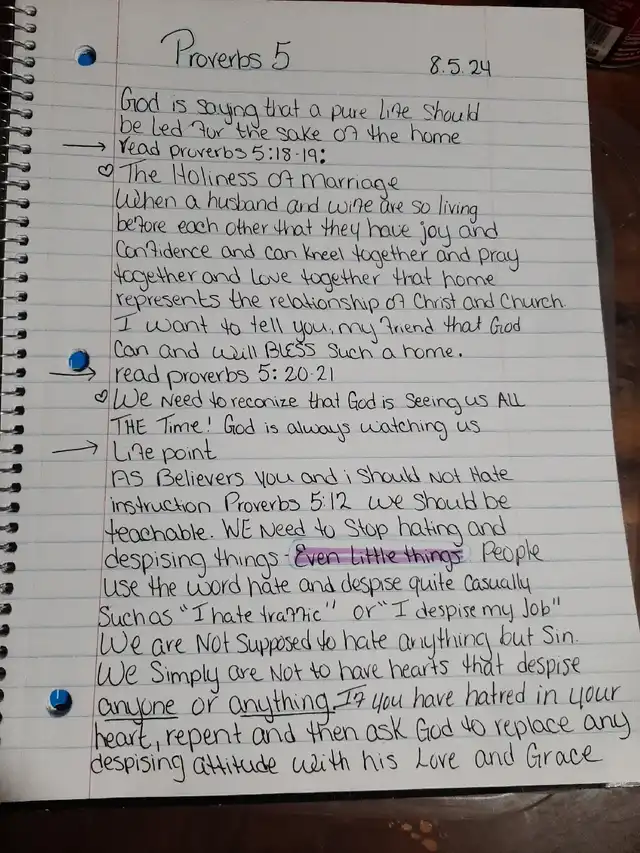 Proverbs 5
8.5.24
God is saying that a pure life should
be led for the sake of the home
→ read proverbs 5:18-19:
♡ The Holiness of Marriage
When a husband and wife are so living
before each other that they have joy and
Confidence and can kneel together and pray
together and love together that home
represents the relationship of Christ and Church.
I want to tell you, my friend that God
Can and will BLESS such a home.
→ read proverbs 5: 20-21
♡ We Need to reconize that God is seeing us ALL
THE Time! God is always watching us
→ Life point
AS Believers you and i should Not Hate
instruction Proverbs 5:12 we should be
teachable. WE Need to stop hating and
despising things - Even Little things. People
use the word hate and despise quite casually
Such as "I hate traffic" or "I despise my Job"
We are Not supposed to hate anything but Sin.
We Simply are Not to have hearts that despise
anyone or anything. If you have hatred in your
heart, repent and then ask God to replace any
despising attitude with his Love and Grace